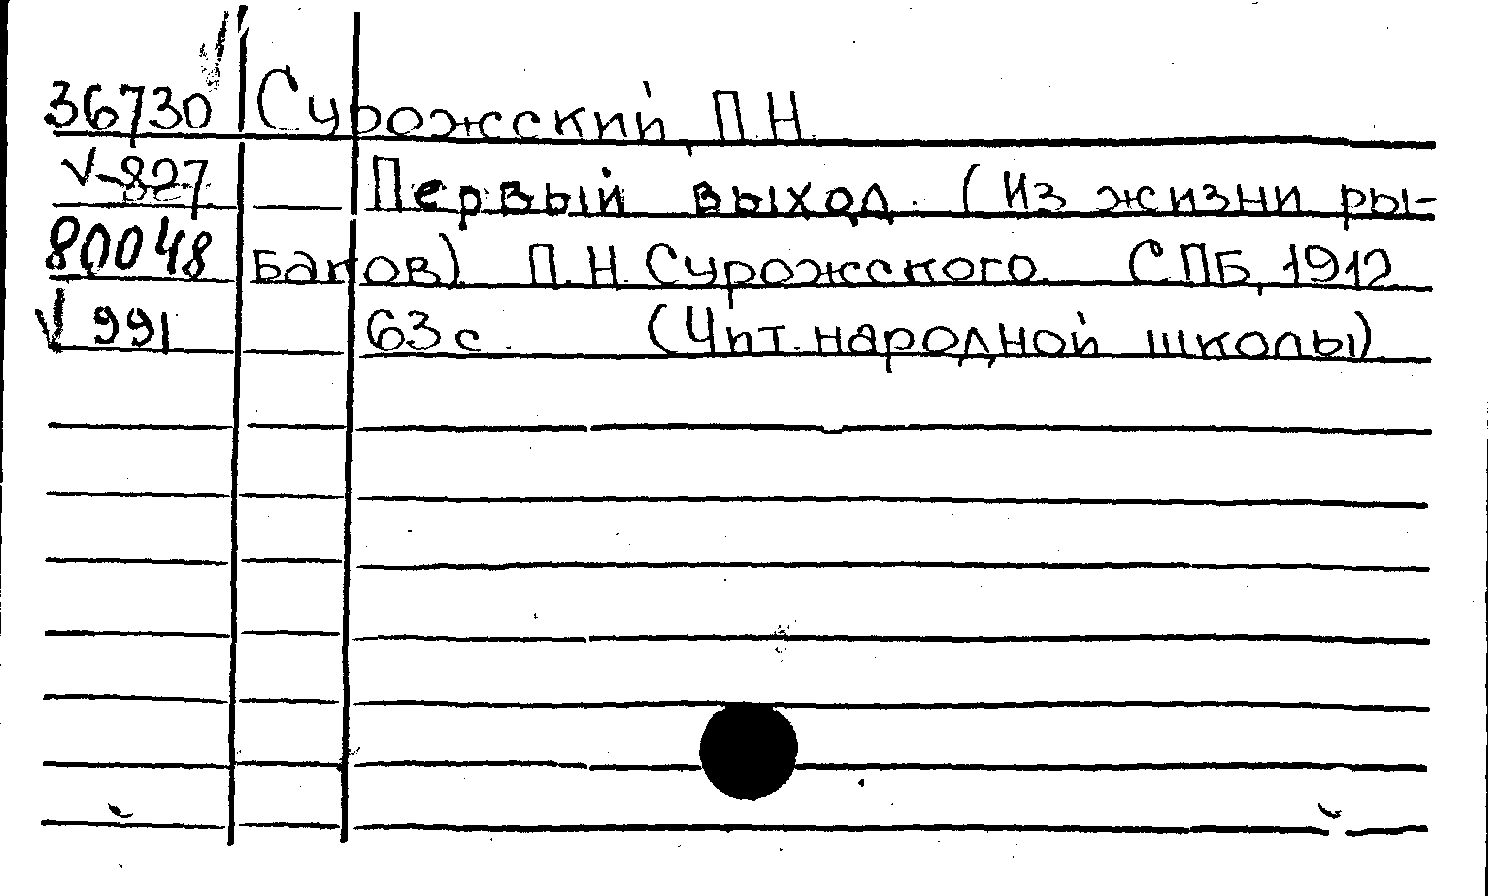 36730 Сурожский П.Н.
V-827 Первый выход. (Из жизни ры-
80048 баков). П.Н. Сурожского. СПБ, 1912
V 991 63 с. (Чит. народной школы)